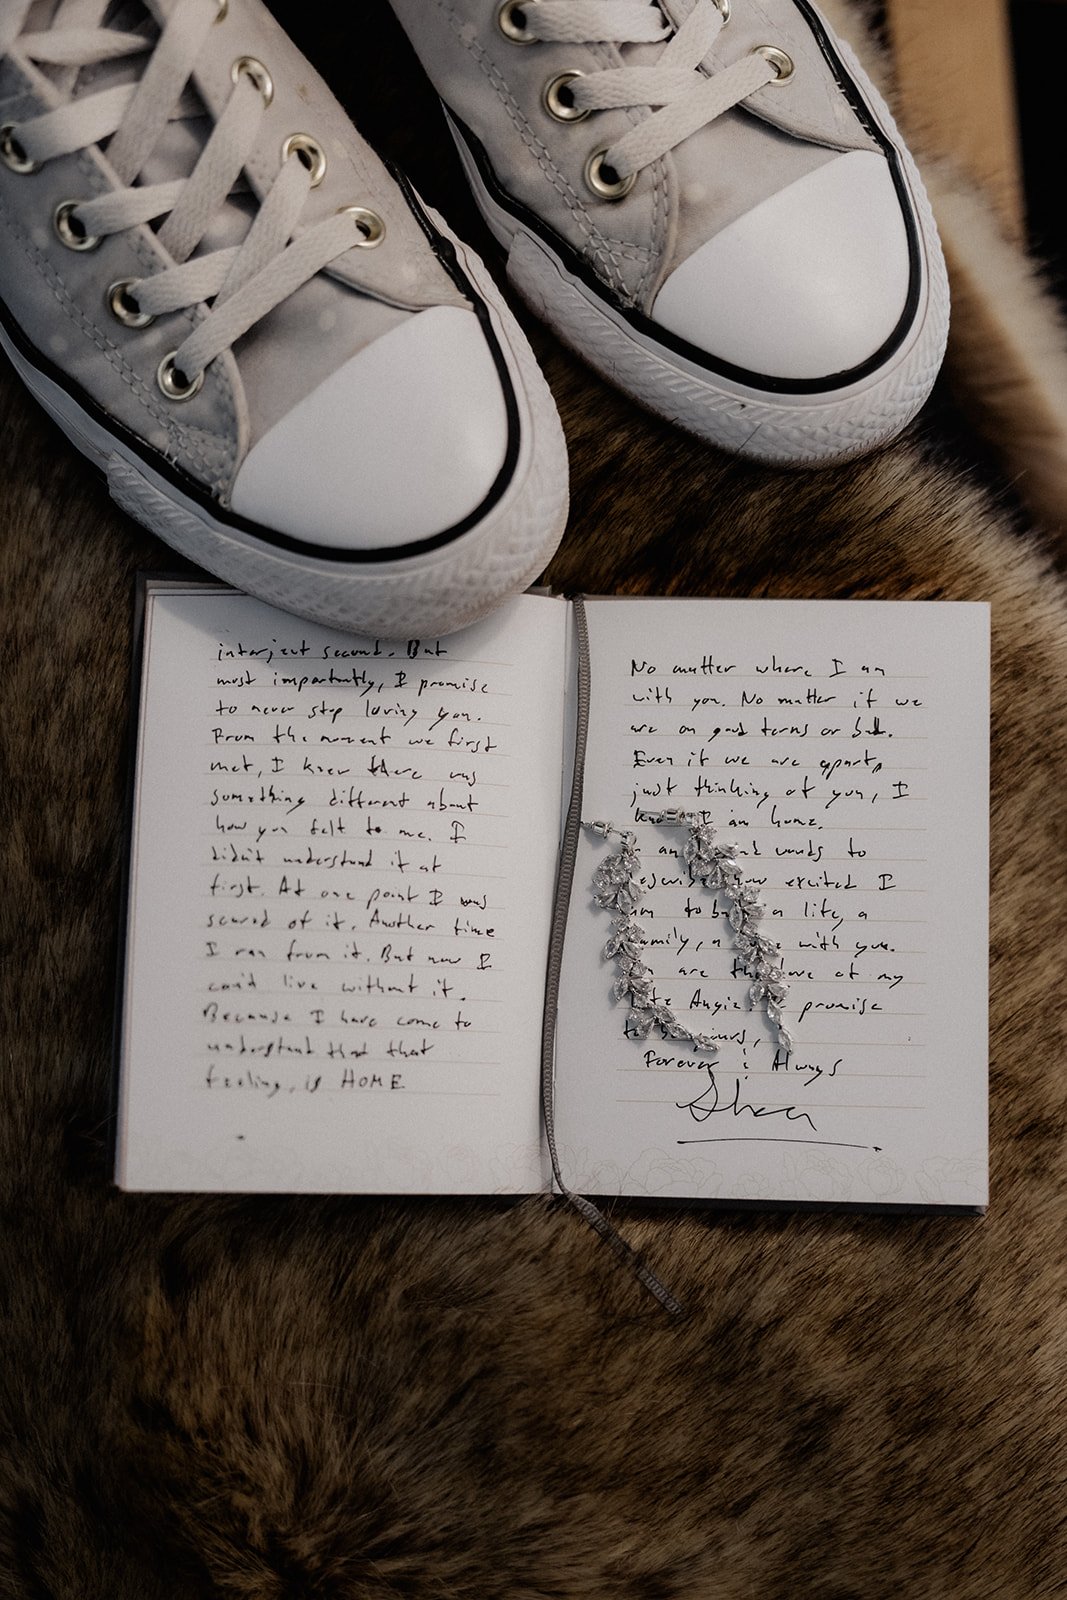 interject second. But
most importantly, I promise
to never stop loving you.
From the moment we first
met, I knew there was
something different about
how you felt to me. I
didn't understand it at
first. At one point I was
scared of it. Another time
I ran from it. But now I
can't live without it.
Because I have come to
understand that that
feeling, is HOME
No matter where I am
with you. No matter if we
are on good terms or bad.
Even if we are apart,
just thinking of you, I
I am home.
words to
how excited I
to a life, a
a with you.
are the love of my
Angie. promise
to yours,
Forever & Always
Shea